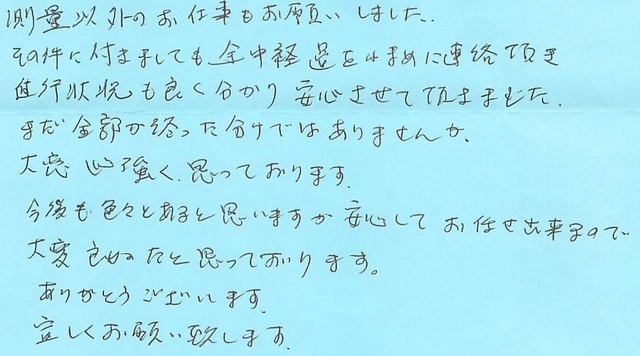 測量以外のお仕事もお願いしました。
その件に付きましても途中経過をこまめに連絡頂き
進行状況も良く分かり安心させて頂きました。
まだ全部が終った分けではありませんが、
大変心強く思っております。
今後も色々とあると思いますが安心してお任せ出来るので
大変良かったと思っております。
ありがとうございます。
宜しくお願い致します。